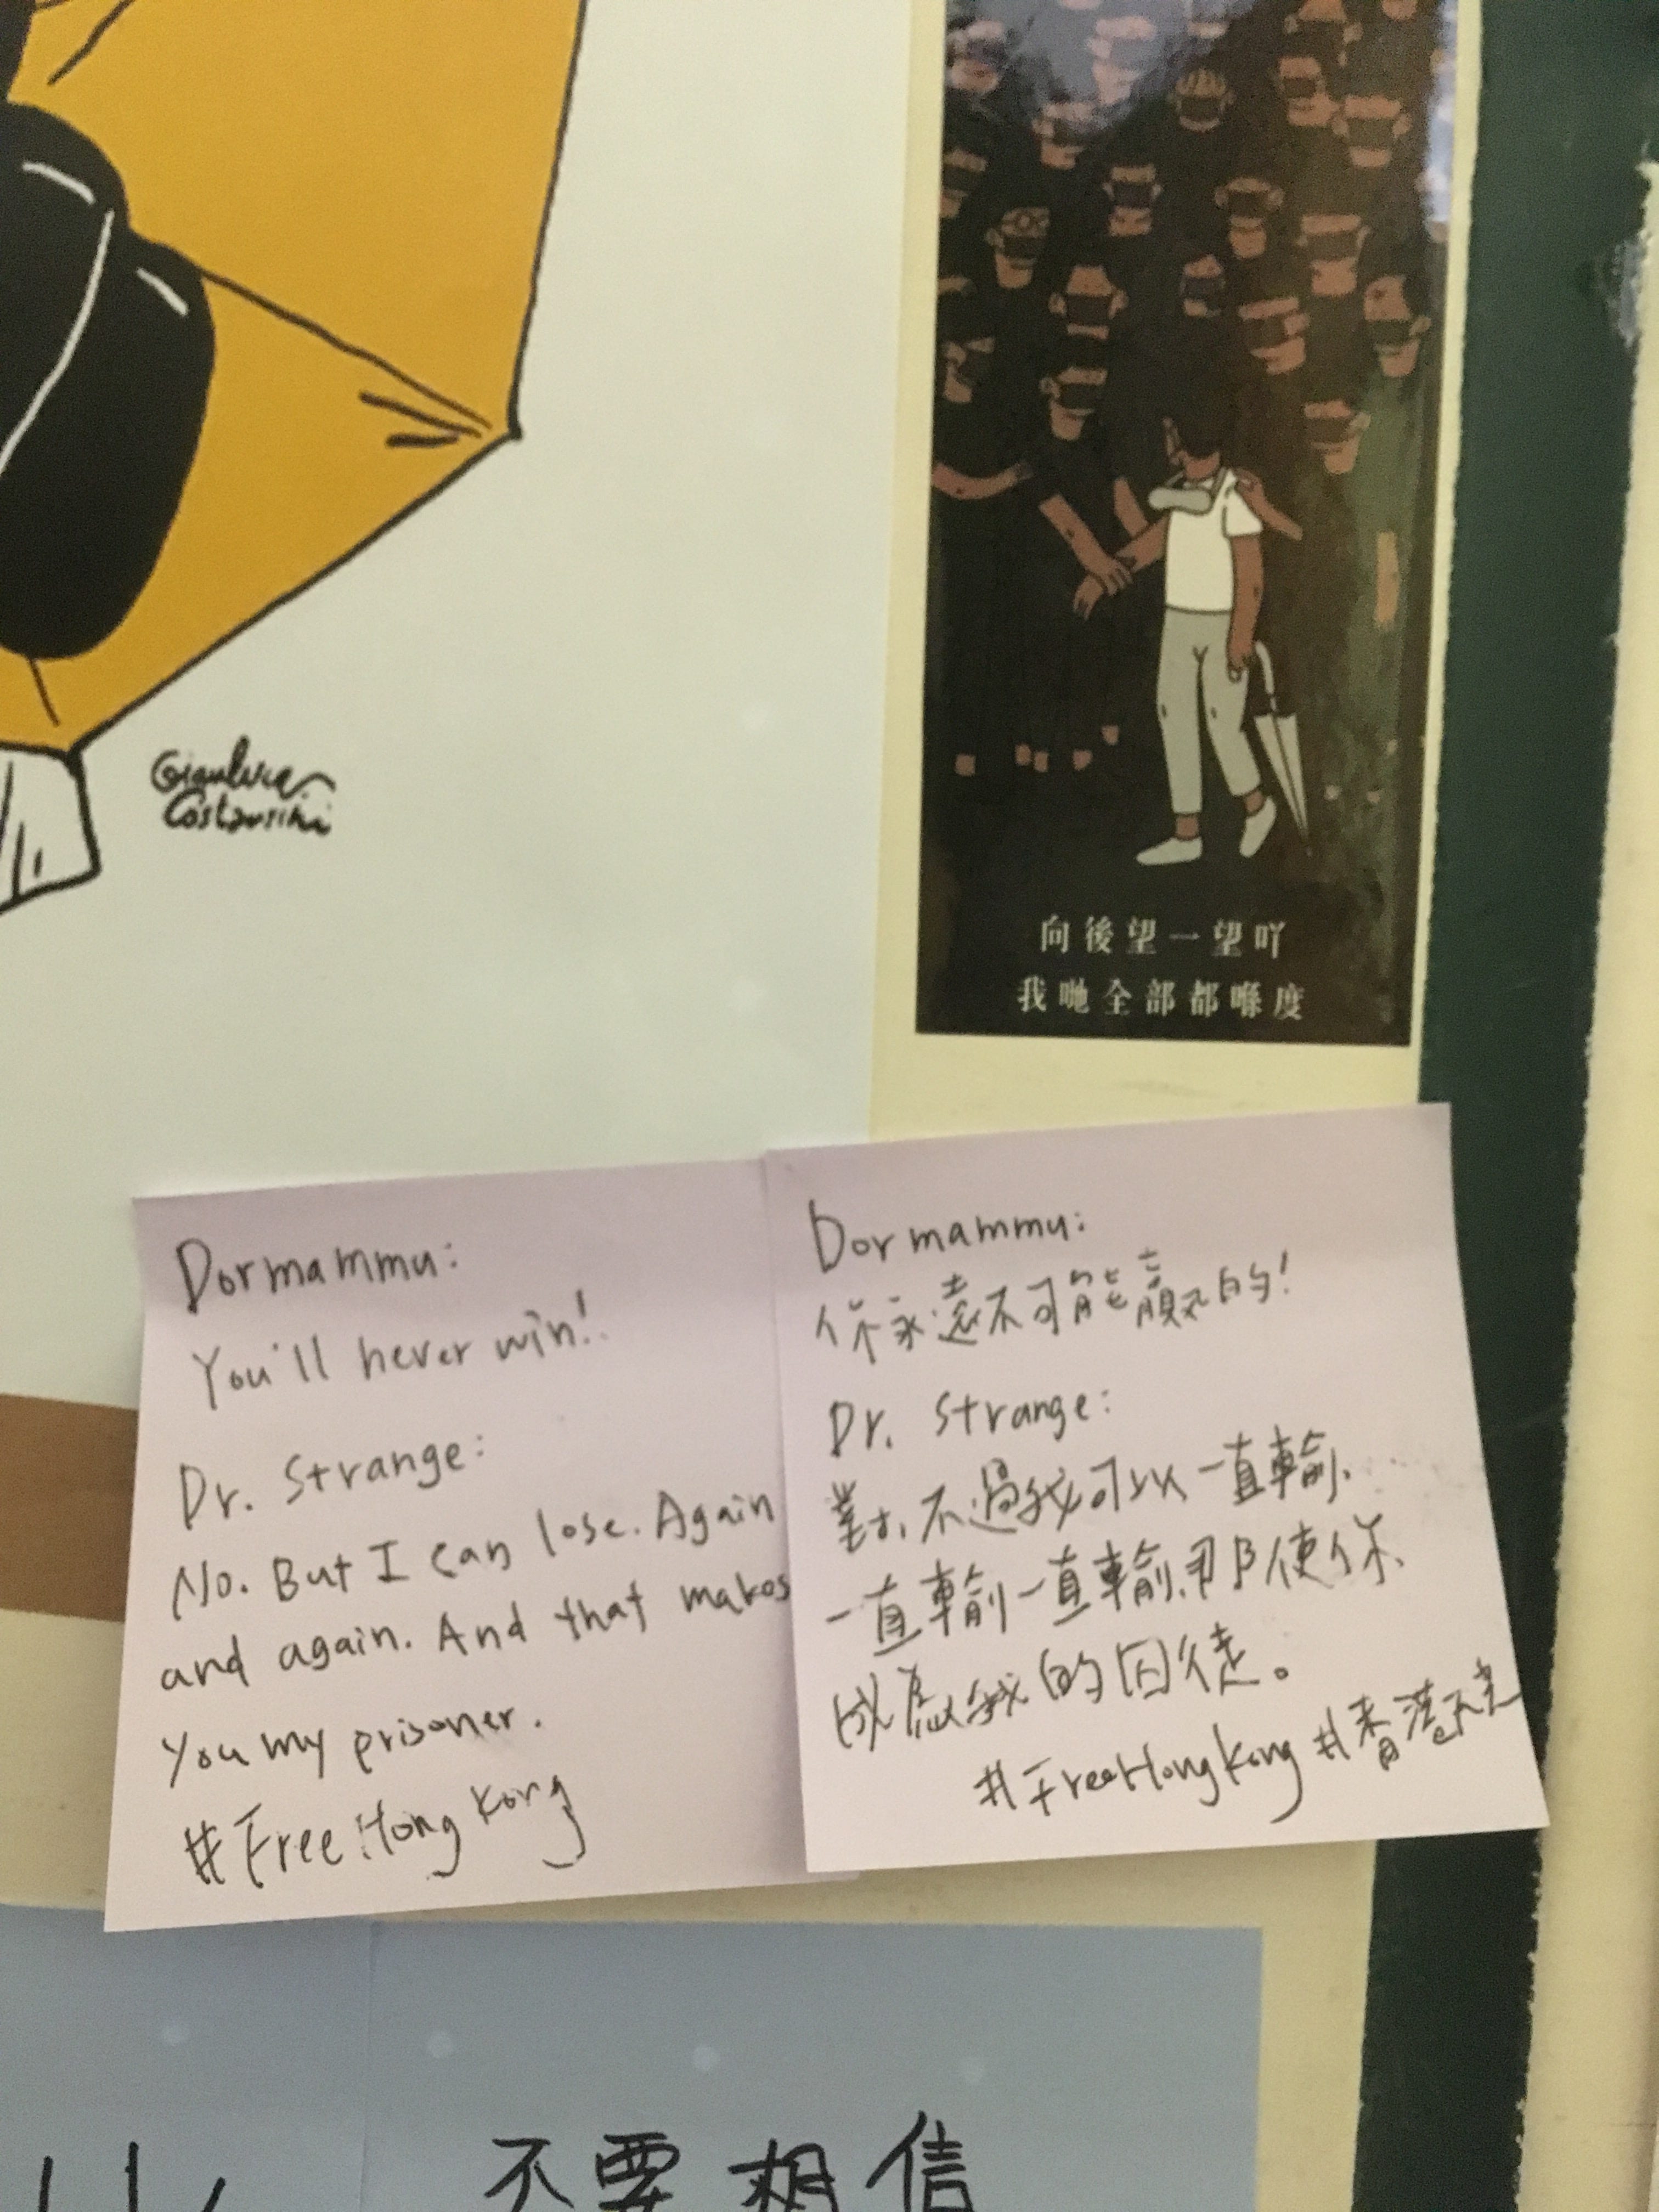 Gianluca
Costantini
向後望一望吖
我哋全部都喺度
Dormammu:
You'll never win!
Dr. Strange:
No. But I can lose. Again
and again. And that makes
you my prisoner.
#FreeHongKong
Dormammu:
你永遠不可能贏的!
Dr. Strange:
對,不過我可以一直輸、
一直輸一直輸,那使你
成為我的囚徒。
#FreeHongKong #香港
不要相信